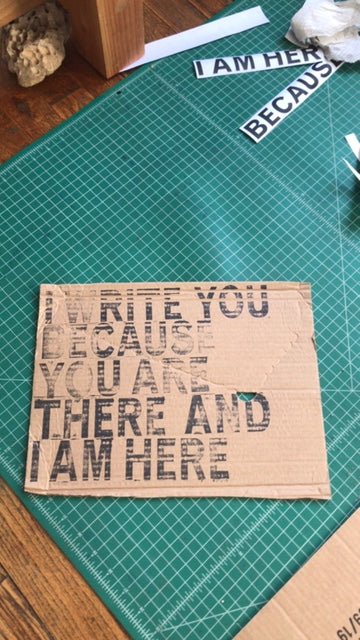 I AM HERE
BECAUSE
I WRITE YOU
BECAUSE
YOU ARE
THERE AND
I AM HERE